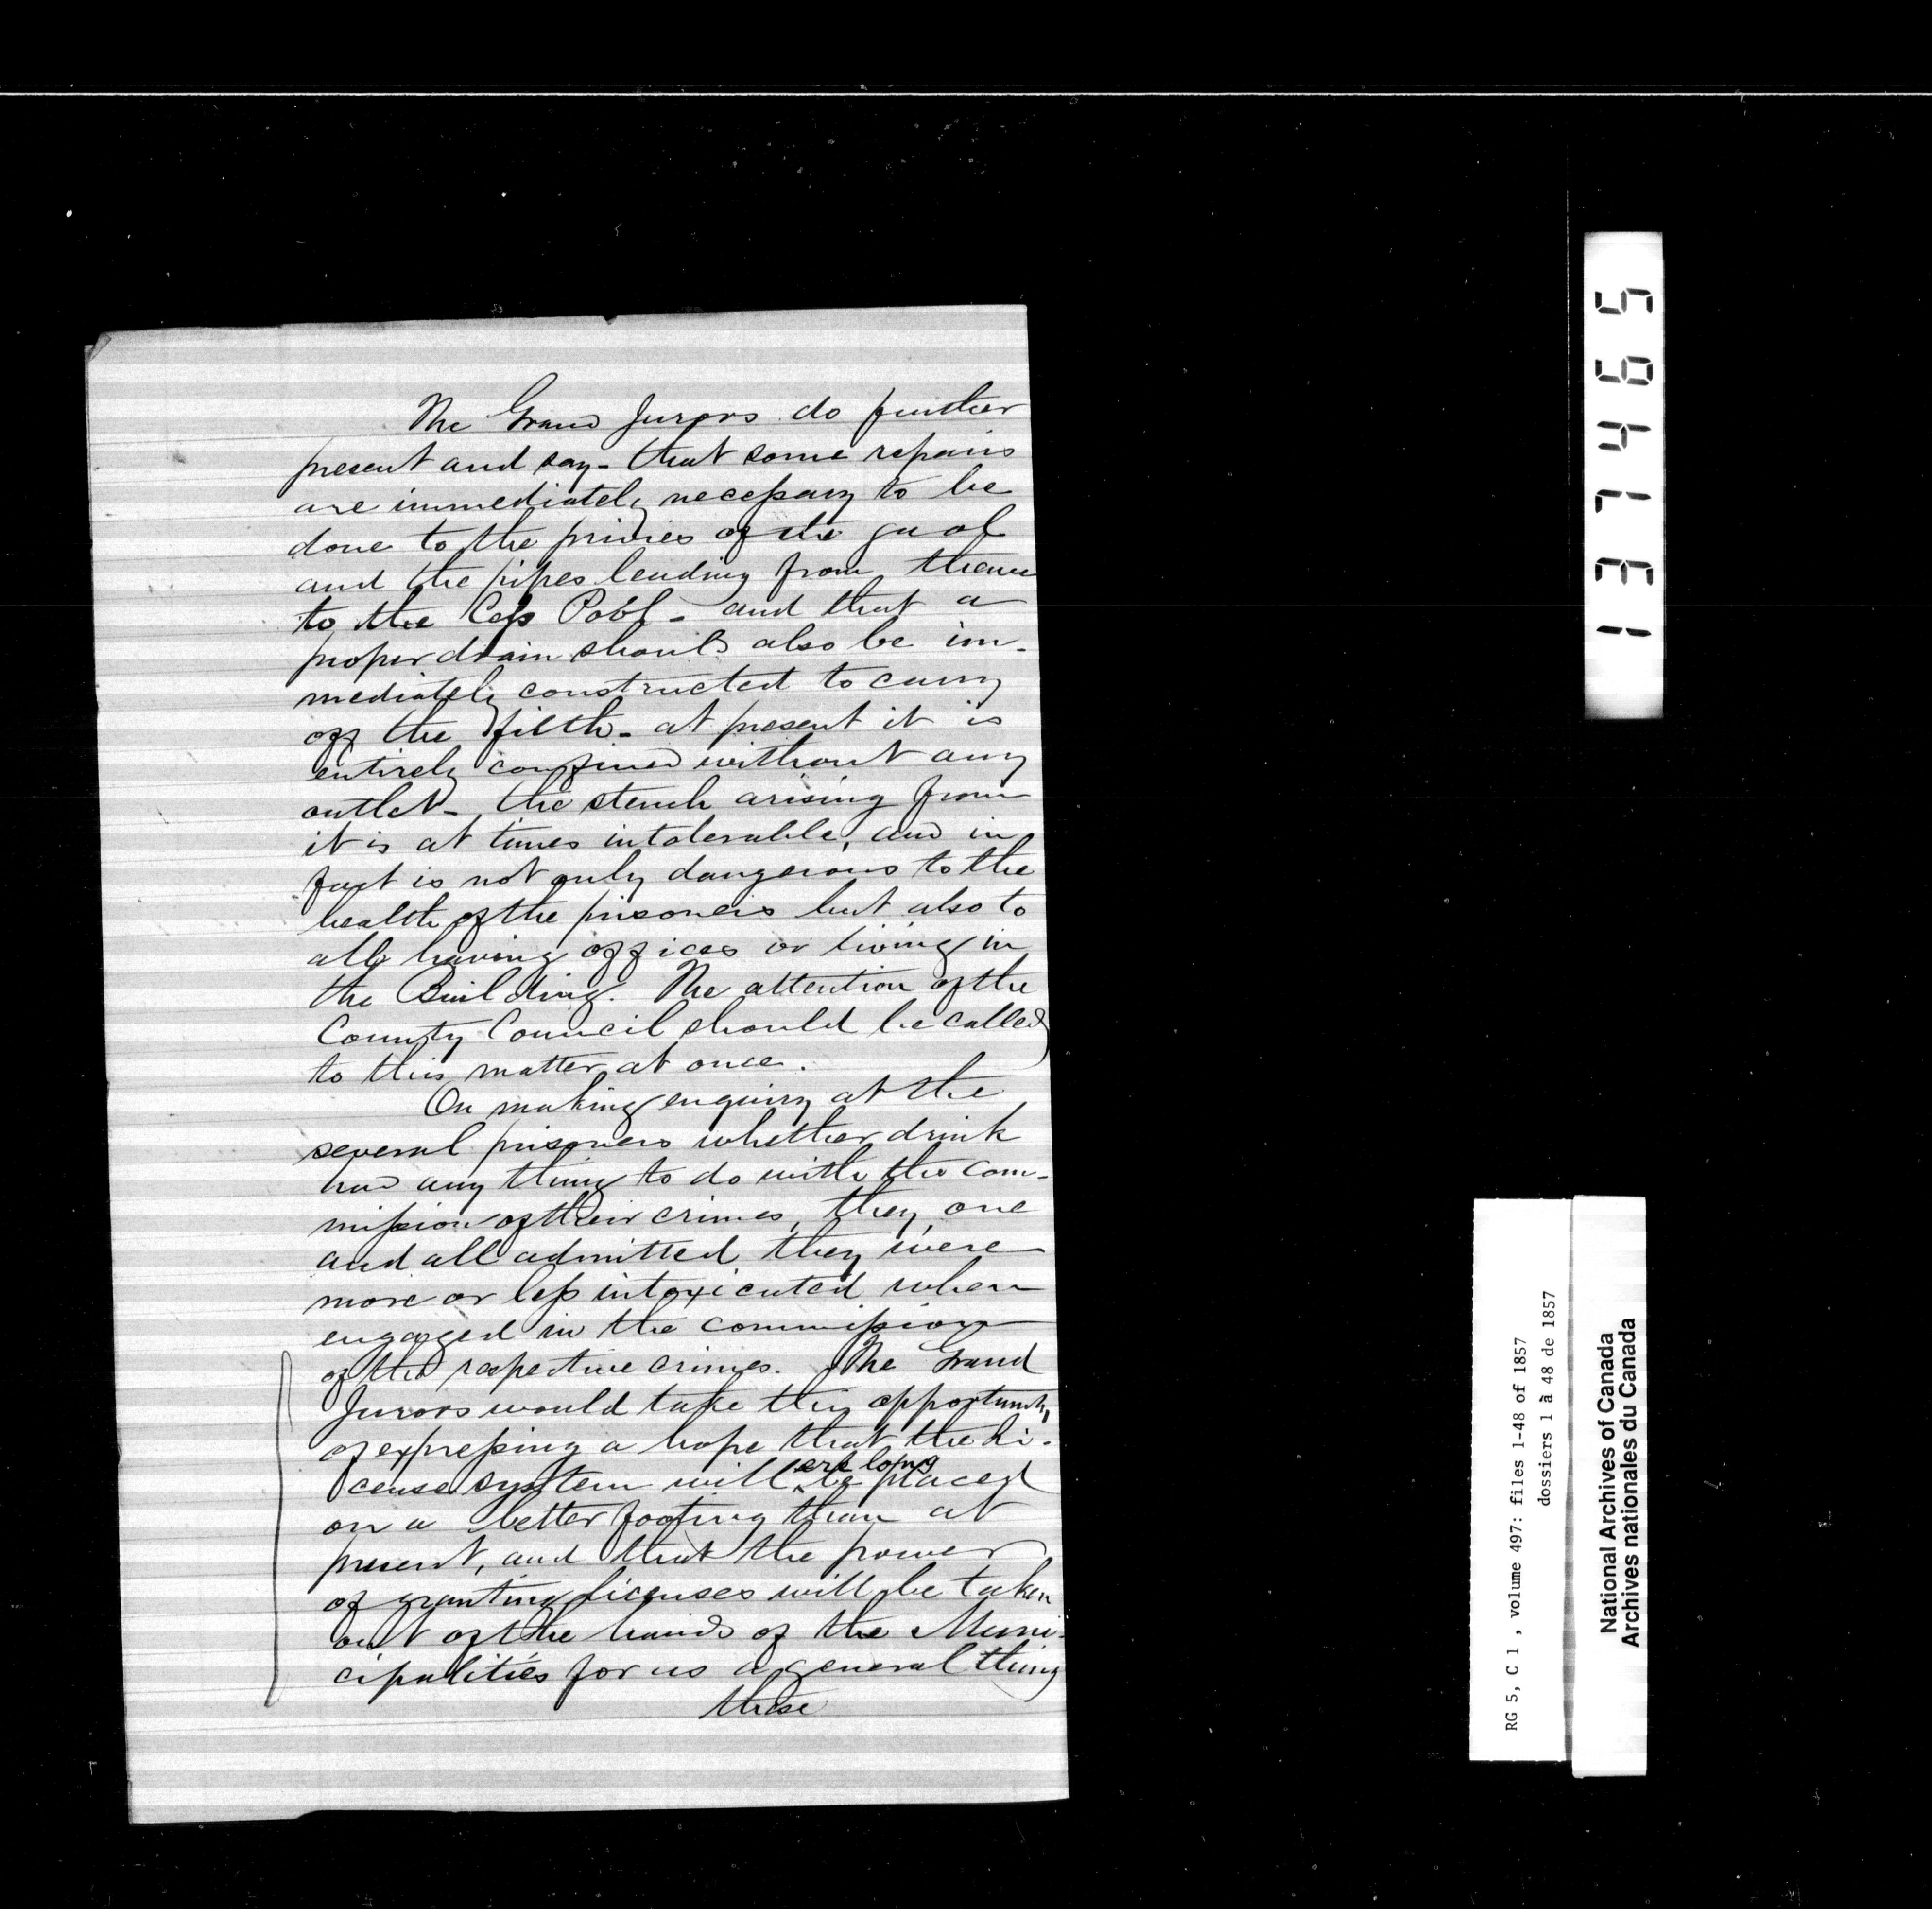 The Grand Jurors do further
present and say - that some repairs
are immediately necessary to be
done to the privies of the gaol
and the pipes leading from them
to the Cess Pool - and that a
proper drain should also be im-
mediately constructed to carry
off the filth - at present it is
entirely confined without any
outlet - the stench arising from
it is at times intolerable, and in
fact is not only dangerous to the
health of the prisoners but also to
all having offices or living in
the Building. The attention of the
County Council should be called
to this matter at once.
On making enquiry at the
several prisoners whether drink
had any thing to do with the com-
mission of their crimes, they, one
and all admitted they were
more or less intoxicated when
engaged in the commission
of the respective crimes. The Grand
Jurors would take this opportunity
of expressing a hope that the Li-
cense system will ere long be placed
on a better footing than at
present, and that the power
of granting licenses will be taken
out of the hands of the Muni-
cipalities for as a general thing
these
137465
RG 5, C 1 , volume 497: files 1-48 of 1857
dossiers 1 à 48 de 1857
National Archives of Canada
Archives nationales du Canada